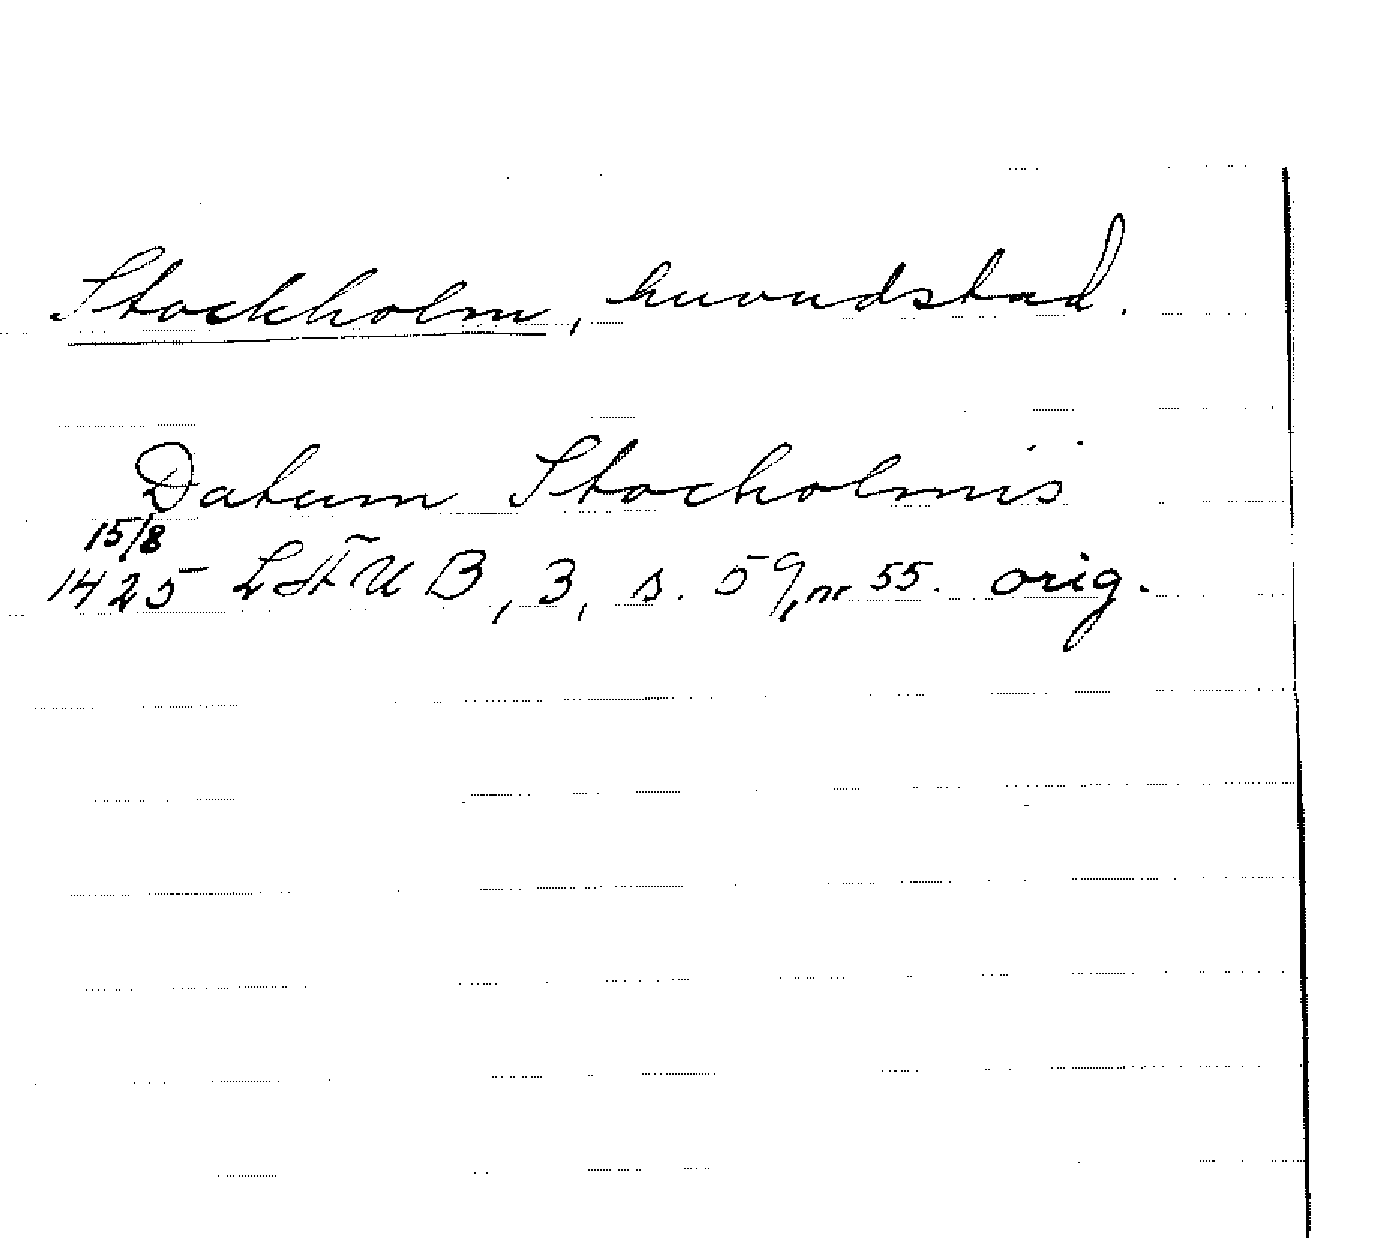 Stockholm, huvudstad.
Datum Stocholmis
15/8
1425 LFUB, 3, s. 59, nr 55. orig.